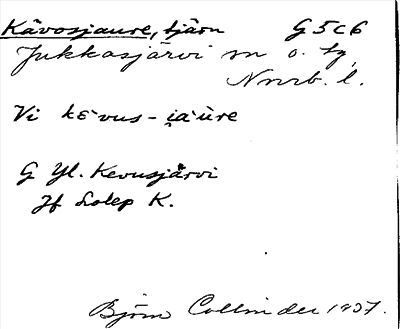 Kävosjaure, tjärn G5c6
Jukkasjärvi sn o. tg,
Nnrb. l.
Vi kɛvus-jaure
G Yl. Kevusjärvi
Jf Lolep K.
Björn Collinder 1937.